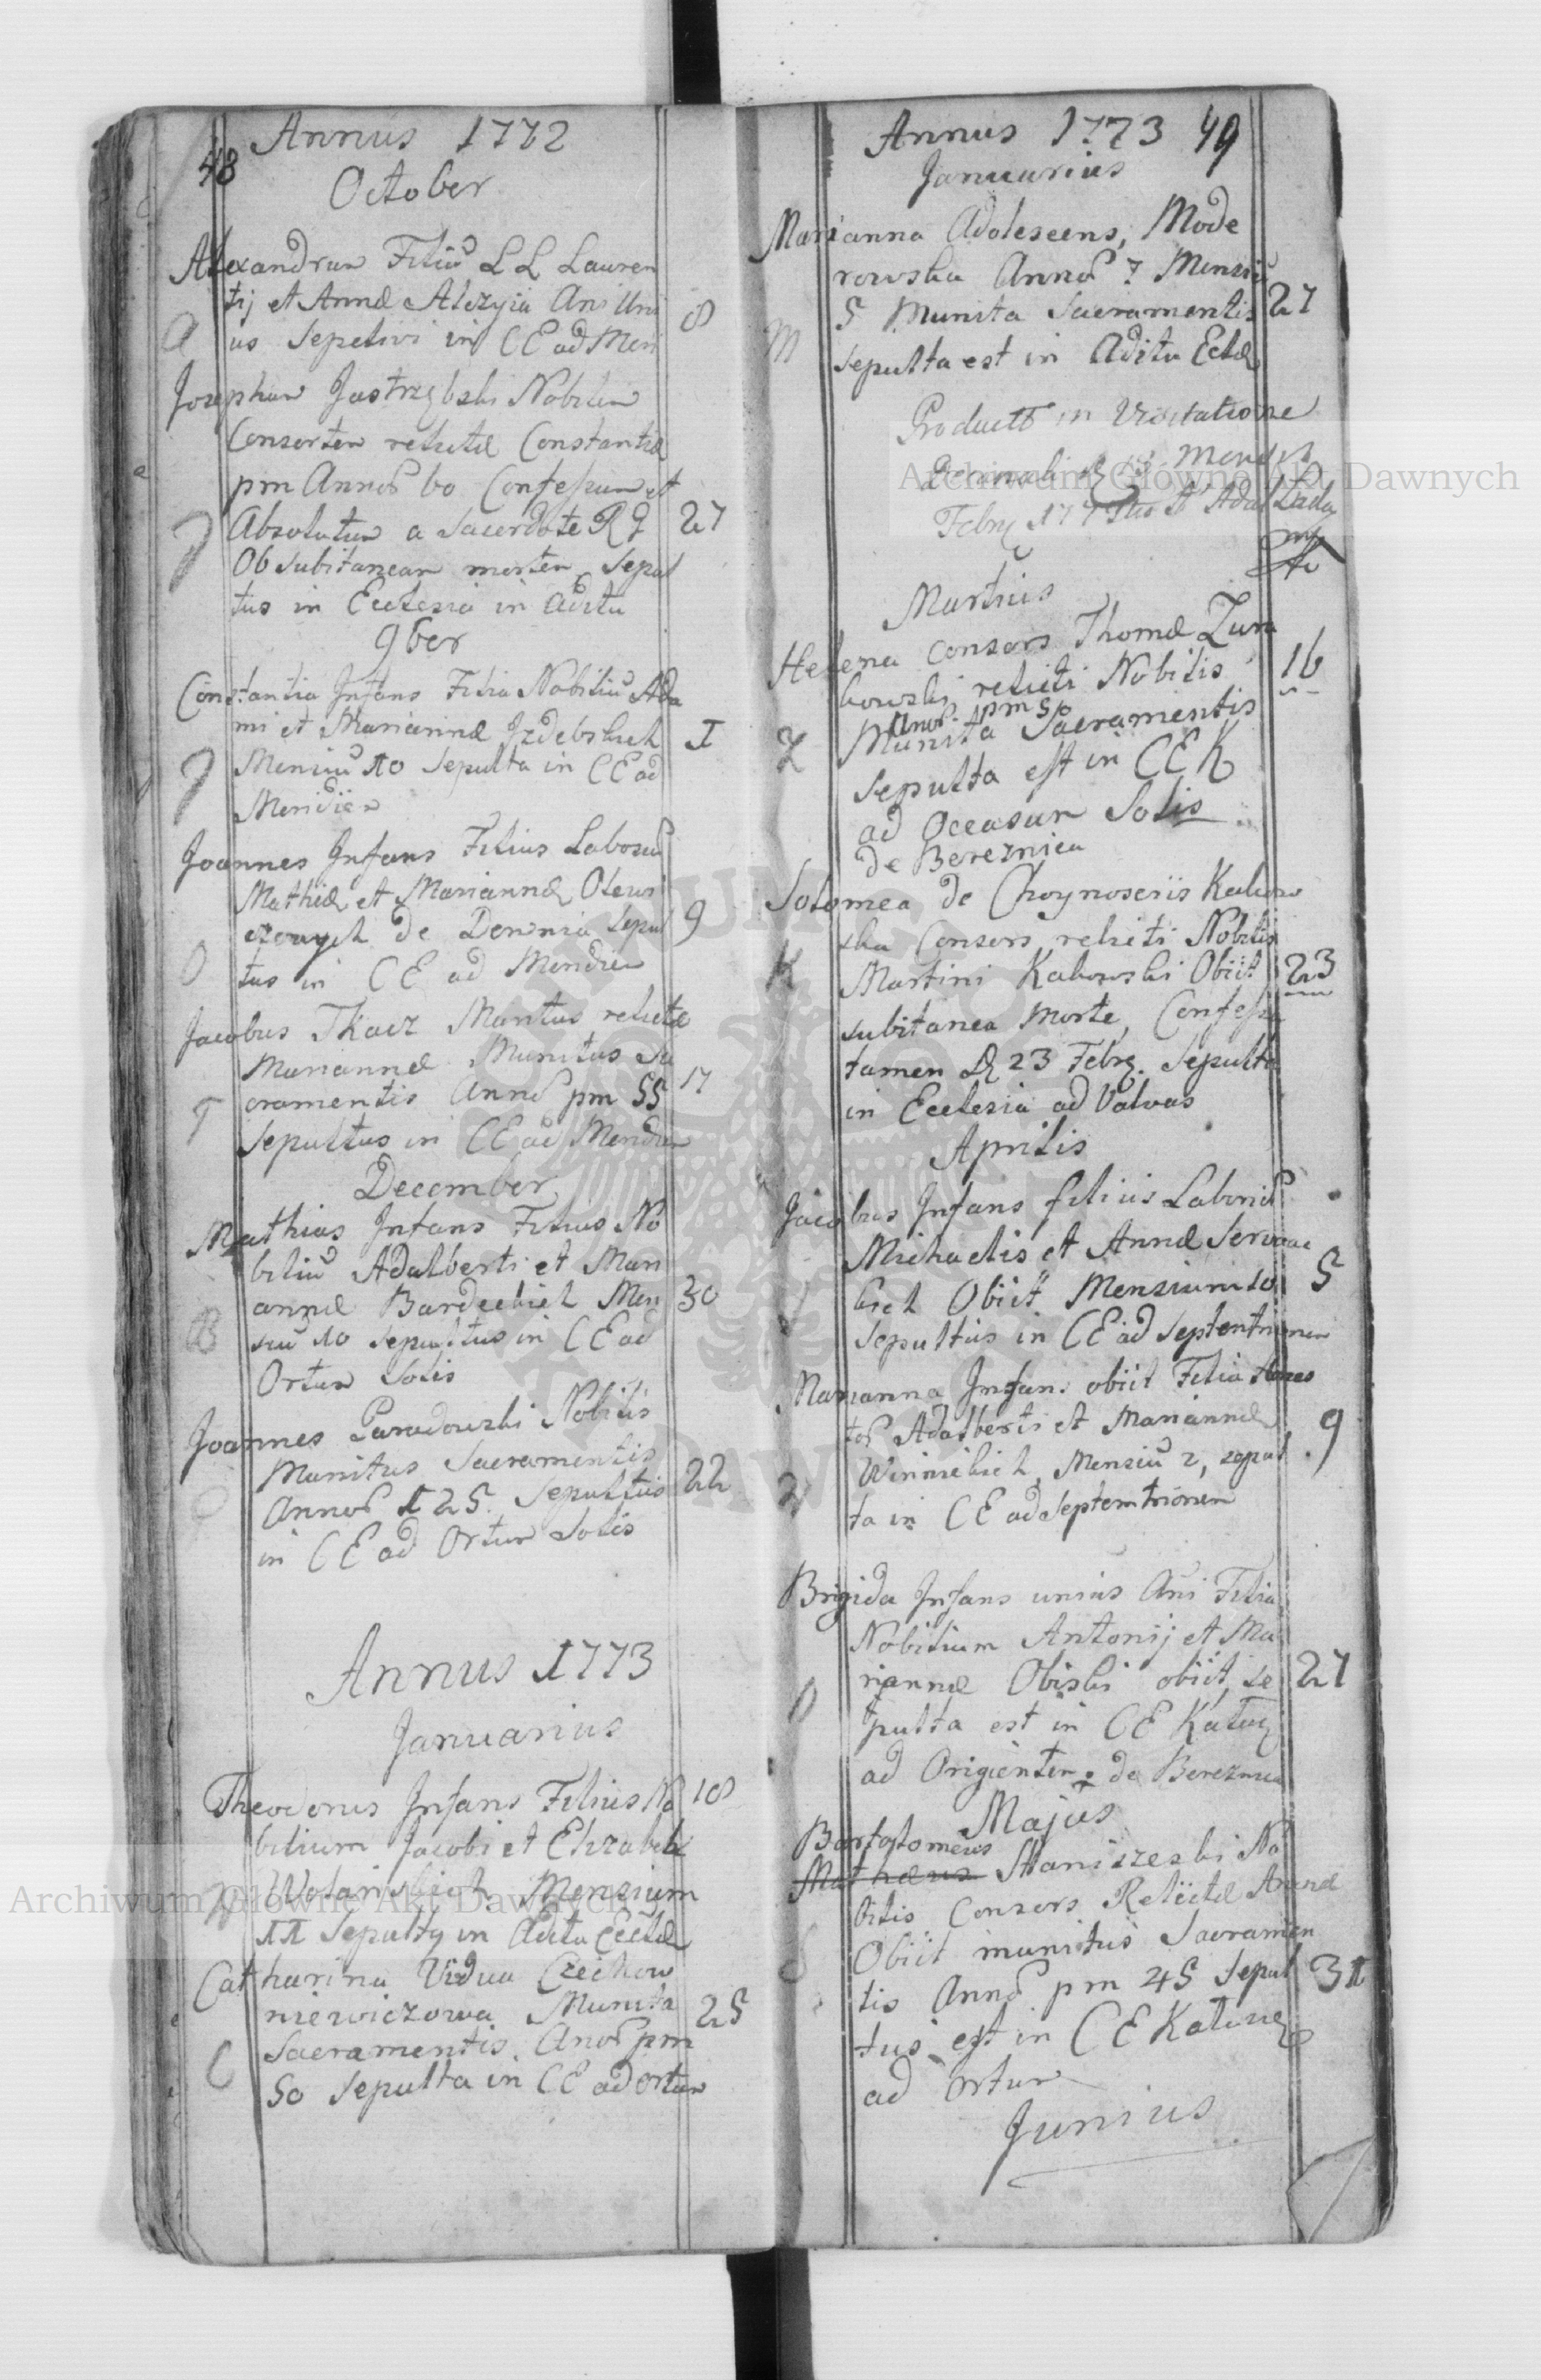 Annus 1772
48
October
Alexandrum Filiu L L Lauren
tij et Annæ Alczyia Ani Uni
A us Sepelivi in CE ad Meri 8
Josephum Jastrzębski Nobilem
Consortem relictæ Constantiæ
pm Annor 60 Confessum et
J Absolutum a Sacerdote R L 27
Ob subitaneam mortem, Sepul
tus in Ecclesia in Aditu
9ber
Constantia Infans Filia Nobiliu Ada
mi et Mariannæ Izdebskich I
J Mensiu 10 Sepulta in CE ad
Meridiem
Joannes Infans Filius Laborios
Mathiæ et Mariannæ Olewi
czowych de Sepul 9
O tus in CE ad Meridiem
Jacobus Tkacz Maritus relictæ
Mariannæ Munitus Sa
T cramentis Annor pm 55 17
Sepultus in CE ad Meridiem
December
Mathias Infans Filius No
biliu Adalberti et Mari
annæ Bardeckich Men 30
B siu 10 Sepultus in CE ad
Ortum Solis
Joannes Paradowski Nobilis
Munitus Sacramentis
Annor 125. Sepultus 22
in CE ad Ortum Solis
Annus 1773
Januarius
Theodorus Infans Filius No 18
bilium Jacobi et Elizabeth
W Wolanskich Mensium
11 Sepultg in Aditu Ecclæ
Catharina Vidua Czechow
niewiczowa Munita 25
Sacramentis. Anor pm
C 50 Sepulta in CE ad Ortum
Annus 1773 49
Januarius
Marianna Adolescens, Mode
rowska Annor 7 Mensiu
5 Munita Sacramentis 27
M Sepulta est in Aditu Eclæ
Product in Visitatione
Decanali D 13 Mensis
Febrg 177
Martius
Helena Consors Thomæ Zura
kowski relicti Nobilis 16
Anor pm 50
Z Munita Sacramentis
Sepulta est in CE K
ad Occasum Solis
de Bereznica
Solomea de Choynoseiis Kakow
ska Consors relicti Nobilis
K Martini Kakowski Obiit 23
subitanea morte, Confessa
tamen D 23 Febrg. Sepulta
in Ecclesia ad Valvas
Aprilis
Jacobus Infans filius Laborios
Michaelis et Annæ
bich Obiit Mensium 10 5
Sepultus in CE ad Septentrionem
Marianna Infans obiit Filia Hones
tor Adalberti et Mariannæ 9
Winnickich Mensiu 2, sepul
W ta in CE ad Septemtrionem
Brigida Infans unius Ani Filia
Nobilium Antonij et Ma
riannæ Obiski obiit, Se 27
O pulta est in CE Katg
ad Origientem de Bereznica
Majus
Bartolomeus
Mathæus Staniszeski No
bilis Consors Relictæ Annæ
S Obiit munitus Sacramen
tis Annor pm 45 Sepul 31
tus est in CE
ad Ortum
Junius
Archiwum Główne Akt Dawnych
Archiwum Główne Akt Dawnych
ARCHIWUM GŁÓWNE AKT DAWNYCH